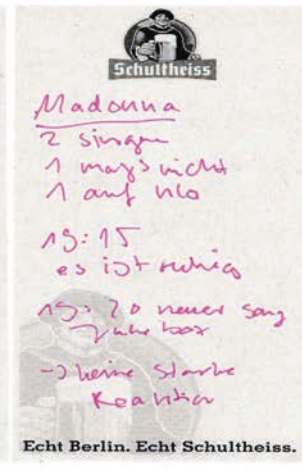 Schultheiss
Madonna
2 singen
1 mag's nicht
1 auf klo
19:15
es ist ruhig
19:20 neuer song
Juke box
-> keine starke
Reaktion
Echt Berlin. Echt Schultheiss.